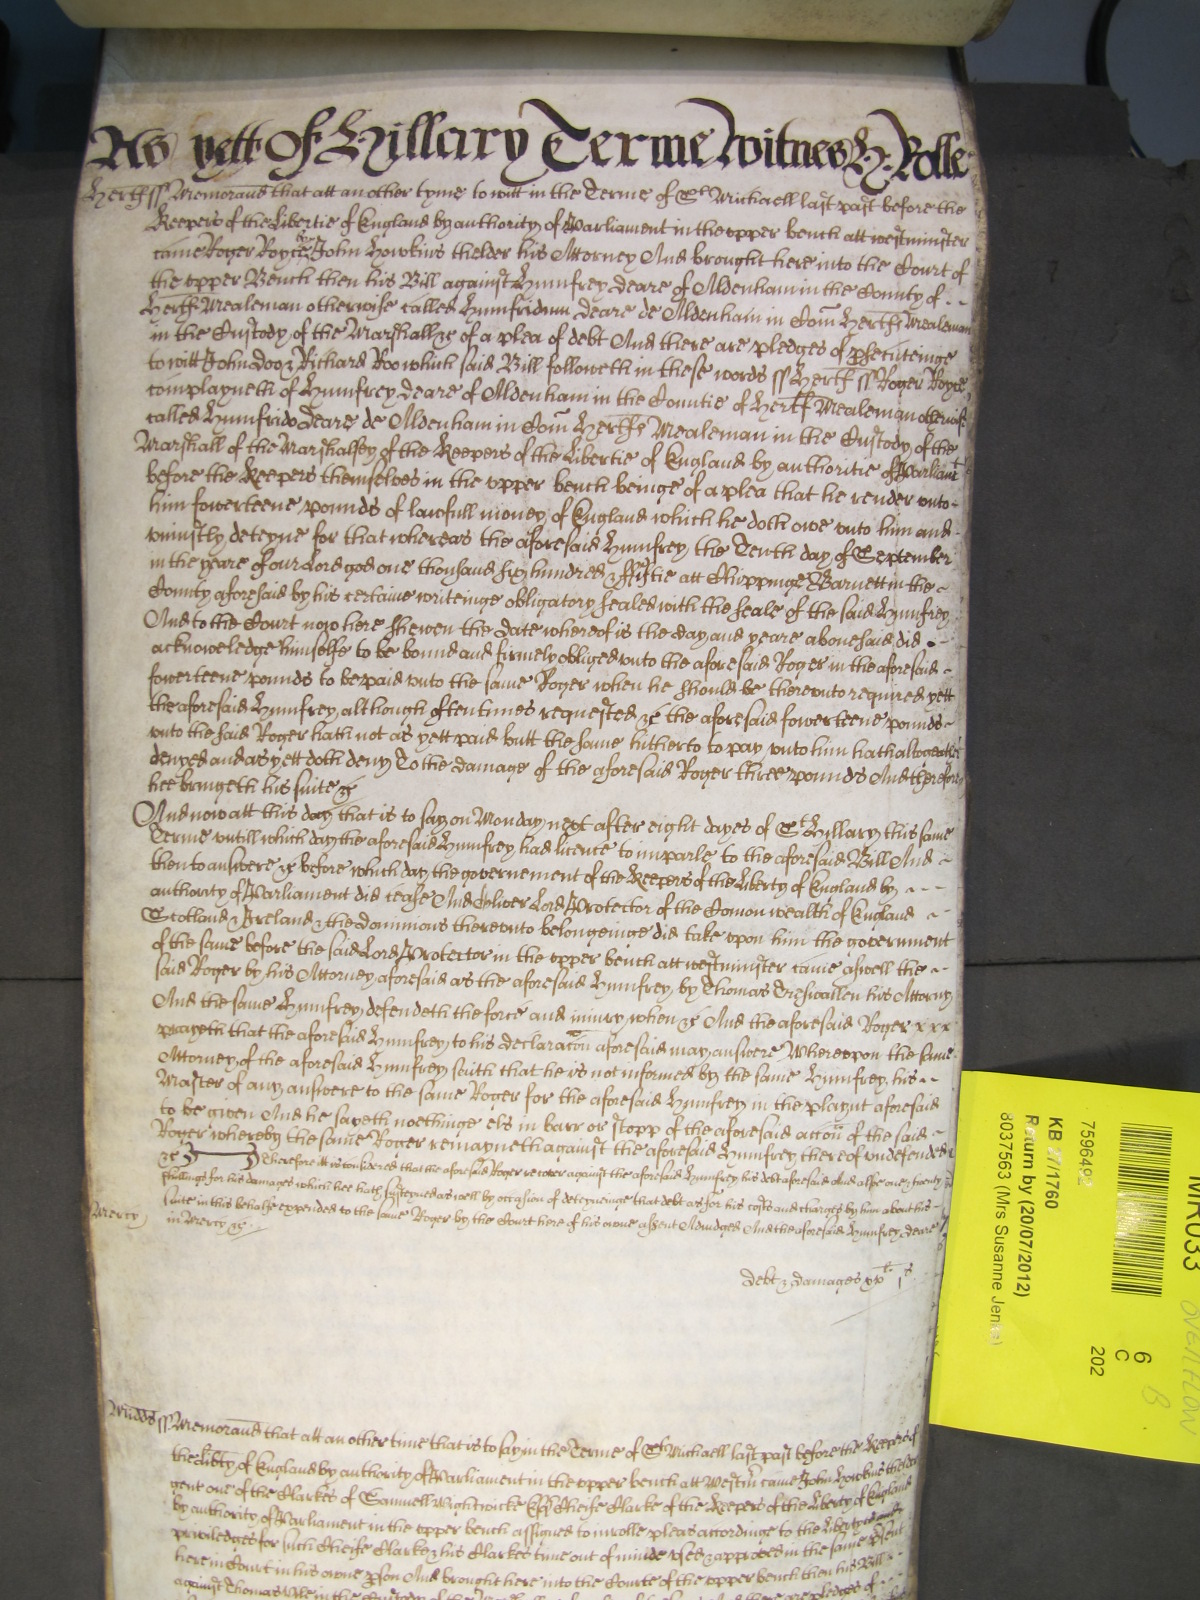 As yett Of Hillary Terme Witnes H: Rolle
Hertf ss Memorand that att an other tyme to witt in the Terme of St Michaell last past before the
Keepers of the Libertie of England by authority of Parliament in the upper bench att westminster
came Roger Royce by John Howkins thelder his Attorney And brought here into the Court of
the upper Bench then his Bill against Humfrey Deare of Aldenham in the County of
Hertf Mealeman otherwise called Humfridum Deare de Aldenham in Com Hertf Mealeman
in the Custody of the Marshall &c of a plea of debt And there are pledges of psecuteinge
to witt John Doo & Richard Roo which said Bill followeth in these words ss Hertf ss Roger Royce
complayneth of Humfrey Deare of Aldenham in the Countie of Hertf Mealeman otherwise
called Humfrido Deare de Aldenham in Com Hertf Mealeman in the Custody of the
Marshall of the Marshalsey of the Keepers of the Libertie of England by authoritie of Parliamt
before the Keepers themselves in the upper bench beinge of a plea that he render unto
him fowerteene pounds of lawfull money of England which he doth owe unto him and
uniustly deteyne for that whereas the aforesaid Humfrey the Tenth day of September
in the yeare of our Lord god one thousand six hundred & fiftie att Chippinge Barnett in the
County aforesaid by his certaine writeinge obligatory sealed with the seale of the said Humfrey
And to the Court now here shewen the date whereof is the day and yeare abovesaid did
acknowledge himselfe to be bound and firmely obliged unto the aforesaid Roger in the aforesaid
fowerteene pounds to be paid unto the same Roger when he should be thereunto required yett
the aforesaid Humfrey although oftentimes requested &c the aforesaid fowerteene pounds
unto the said Roger hath not as yett paid butt the same hitherto to pay unto him hath altogeather
denyed and as yett doth deny To the damage of the aforesaid Roger three pounds And therefore
hee bringeth his suite &c
And now att this day that is to say on Monday next after eight dayes of St Hillary this same
Terme untill which day the aforesaid Humfrey had licence to imparle to the aforesaid Bill And
then to answere &c before which day the governement of the Keepers of the Liberty of England by
authority of Parliament did cease And Oliver Lord Protector of the Comon wealth of England
Scotland & Ireland & the dominions thereunto belongeinge did take upon him the government
of the same before the said Lord Protector in the upper bench att westminster came aswell the
said Roger by his Attorney aforesaid as the aforesaid Humfrey by Thomas his Attorny
And the same Humfrey defendeth the force and iniury when &c And the aforesaid Roger x x x
prayeth that the aforesaid Humfrey to his declaracon aforesaid may answere Whereupon the same
Attorney of the aforesaid Humfrey saith that he is not informed by the same Humfrey his
Master of any answere to the same Roger for the aforesaid Humfrey in the playnt aforesaid
to be given And he sayeth noethinge els in barr or stopp of the aforesaid accon of the said
Roger whereby the same Roger remayneth against the aforesaid Humfrey thereof undefended
&c Therefore itt is considered that the aforesaid Roger recover against the aforesaid Humfrey his debt aforesaid And alsoe one & twenty
shillings for his damages which hee hath susteyned aswell by occasion of deteyneinge that debt as for his costs and charges by him about his
suite in this behalfe expended to the same Roger by the Court here of his owne assent Adiudged And the aforesaid Humfrey Deare
Mercy
in Mercy &c
debt & damages xvl is
Midds ss Memorand that att an other time that is to say in the Terme of St Michaell last past before the Keepers of
the Libty of England by authority of Parliament in the upper bench att Westmr came John Howkins thelder
gent one of the Clarkes of Samuell Wightwicke Esq Cheife Clarke of the Keepers of the Liberty of England
by authority of Parliament in the upper bench assigned to inrolle pleas accordinge to the Liberty
priviledges for such Cheife Clarke & his Clarkes time out of minde used & approved in the same psent
here in Court in his owne pson And brought here into the Courte of the upper bench then his Bill
against Thomas in the Custody of the
MR033
OVERFLOW
B
6
C
202
7596492
KB 27/1760
Return by (20/07/2012)
8037563 (Mrs Susanne Jen